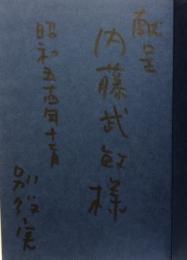 献呈
内藤武敏様
昭和五十五年十一月
別役実